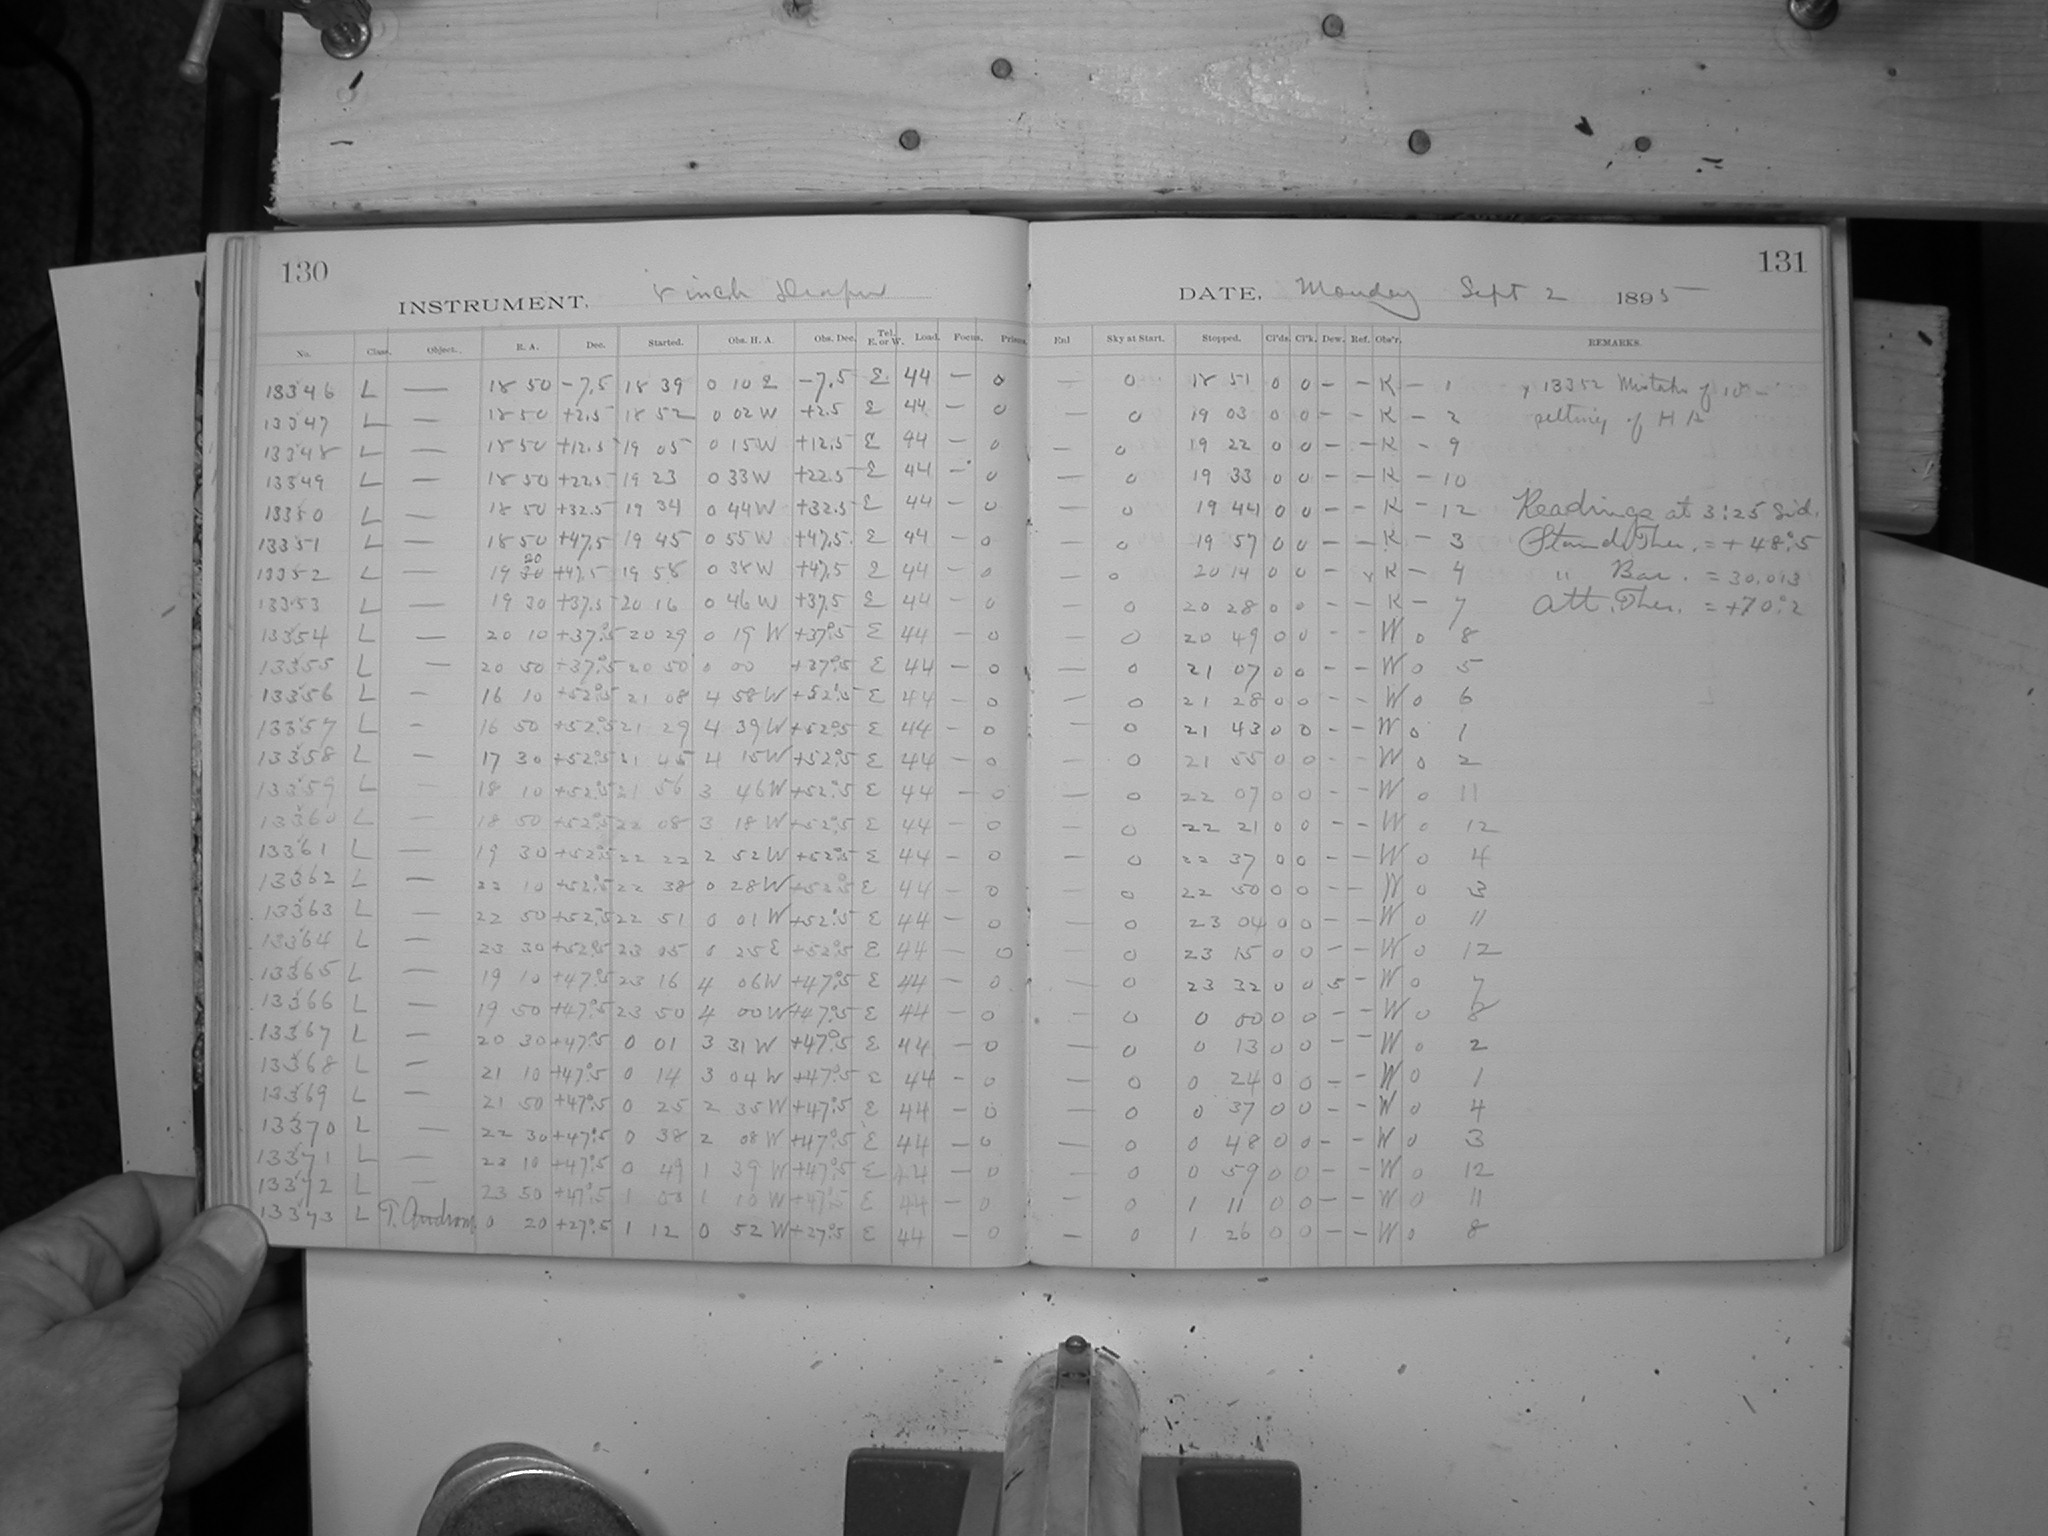 130
INSTRUMENT. 8 inch Draper
No. Class. Object. R. A. Dec. Started. Obs. H. A. Obs. Dec. Tel. E. or W. Load. Focus. Prism.
13346 L — 18 50 −7.5 18 39 0 10 E −7.5 E 44 — 0
13347 L — 18 50 +2.5 18 52 0 02 W +2.5 E 44 — 0
13348 L — 18 50 +12.5 19 05 0 15 W +12.5 E 44 — 0
13349 L — 18 50 +22.5 19 23 0 33 W +22.5 E 44 — 0
13350 L — 18 50 +32.5 19 34 0 44 W +32.5 E 44 — 0
13351 L — 18 50 +47.5 19 45 0 55 W +47.5 E 44 — 0
13352 L — 19 20 +47.5 19 58 0 38 W +47.5 E 44 — 0
13353 L — 19 30 +37.5 20 16 0 46 W +37.5 E 44 — 0
13354 L — 20 10 +37°.5 20 29 0 19 W +37°.5 E 44 — 0
13355 L — 20 50 +37°.5 20 50 0 00 +37°.5 E 44 — 0
13356 L — 16 10 +52°.5 21 08 4 58 W +52°.5 E 44 — 0
13357 L — 16 50 +52°.5 21 29 4 39 W +52°.5 E 44 — 0
13358 L — 17 30 +52°.5 21 45 4 15 W +52°.5 E 44 — 0
13359 L — 18 10 +52°.5 21 56 3 46 W +52°.5 E 44 — 0
13360 L — 18 50 +52°.5 22 08 3 18 W +52°.5 E 44 — 0
13361 L — 19 30 +52°.5 22 22 2 52 W +52°.5 E 44 — 0
13362 L — 22 10 +52°.5 22 38 0 28 W +52°.5 E 44 — 0
13363 L — 22 50 +52°.5 22 51 0 01 W +52°.5 E 44 — 0
13364 L — 23 30 +52°.5 23 05 0 25 E +52°.5 E 44 — 0
13365 L — 19 10 +47°.5 23 16 4 06 W +47°.5 E 44 — 0
13366 L — 19 50 +47°.5 23 50 4 00 W +47°.5 E 44 — 0
13367 L — 20 30 +47°.5 0 01 3 31 W +47°.5 E 44 — 0
13368 L — 21 10 +47°.5 0 14 3 04 W +47°.5 E 44 — 0
13369 L — 21 50 +47°.5 0 25 2 35 W +47°.5 E 44 — 0
13370 L — 22 30 +47°.5 0 38 2 08 W +47°.5 E 44 — 0
13371 L — 23 10 +47°.5 0 49 1 39 W +47°.5 E 44 — 0
13372 L — 23 50 +47°.5 1 00 1 10 W +47°.5 E 44 — 0
13373 L T. Androm. 0 20 +27°.5 1 12 0 52 W +27°.5 E 44 — 0
131
DATE. Monday Sept 2 1895
Enl Sky at Start. Stopped. Cl'ds. Cl'k. Dew. Ref. Obs'r. REMARKS.
— 0 18 51 0 0 — — K — 1 , 13352 Mistake of 10
— 0 19 03 0 0 — — K — 2 setting of H A
— 0 19 22 0 0 — — K — 9
— 0 19 33 0 0 — — K — 10
— 0 19 44 0 0 — — K — 12 Readings at 3:25 Sid.
— 0 19 57 0 0 — — K — 3 Stand. Ther. = + 48°.5
— 0 20 14 0 0 — , K — 4 " Bar. = 30.013
— 0 20 28 0 0 — — K — 7 Att. Ther. = +70°.2
— 0 20 49 0 0 — — W 0 8
— 0 21 07 0 0 — — W 0 5
— 0 21 28 0 0 — — W 0 6
— 0 21 43 0 0 — — W 0 1
— 0 21 55 0 0 — — W 0 2
— 0 22 07 0 0 — — W 0 11
— 0 22 21 0 0 — — W 0 12
— 0 22 37 0 0 — — W 0 4
— 0 22 50 0 0 — — W 0 3
— 0 23 04 0 0 — — W 0 11
— 0 23 15 0 0 — — W 0 12
— 0 23 32 0 0 5 — W 0 7
— 0 0 00 0 0 — — W 0 8
— 0 0 13 0 0 — — W 0 2
— 0 0 24 0 0 — — W 0 1
— 0 0 37 0 0 — — W 0 4
— 0 0 48 0 0 — — W 0 3
— 0 0 59 0 0 — — W 0 12
— 0 1 11 0 0 — — W 0 11
— 0 1 26 0 0 — — W 0 8